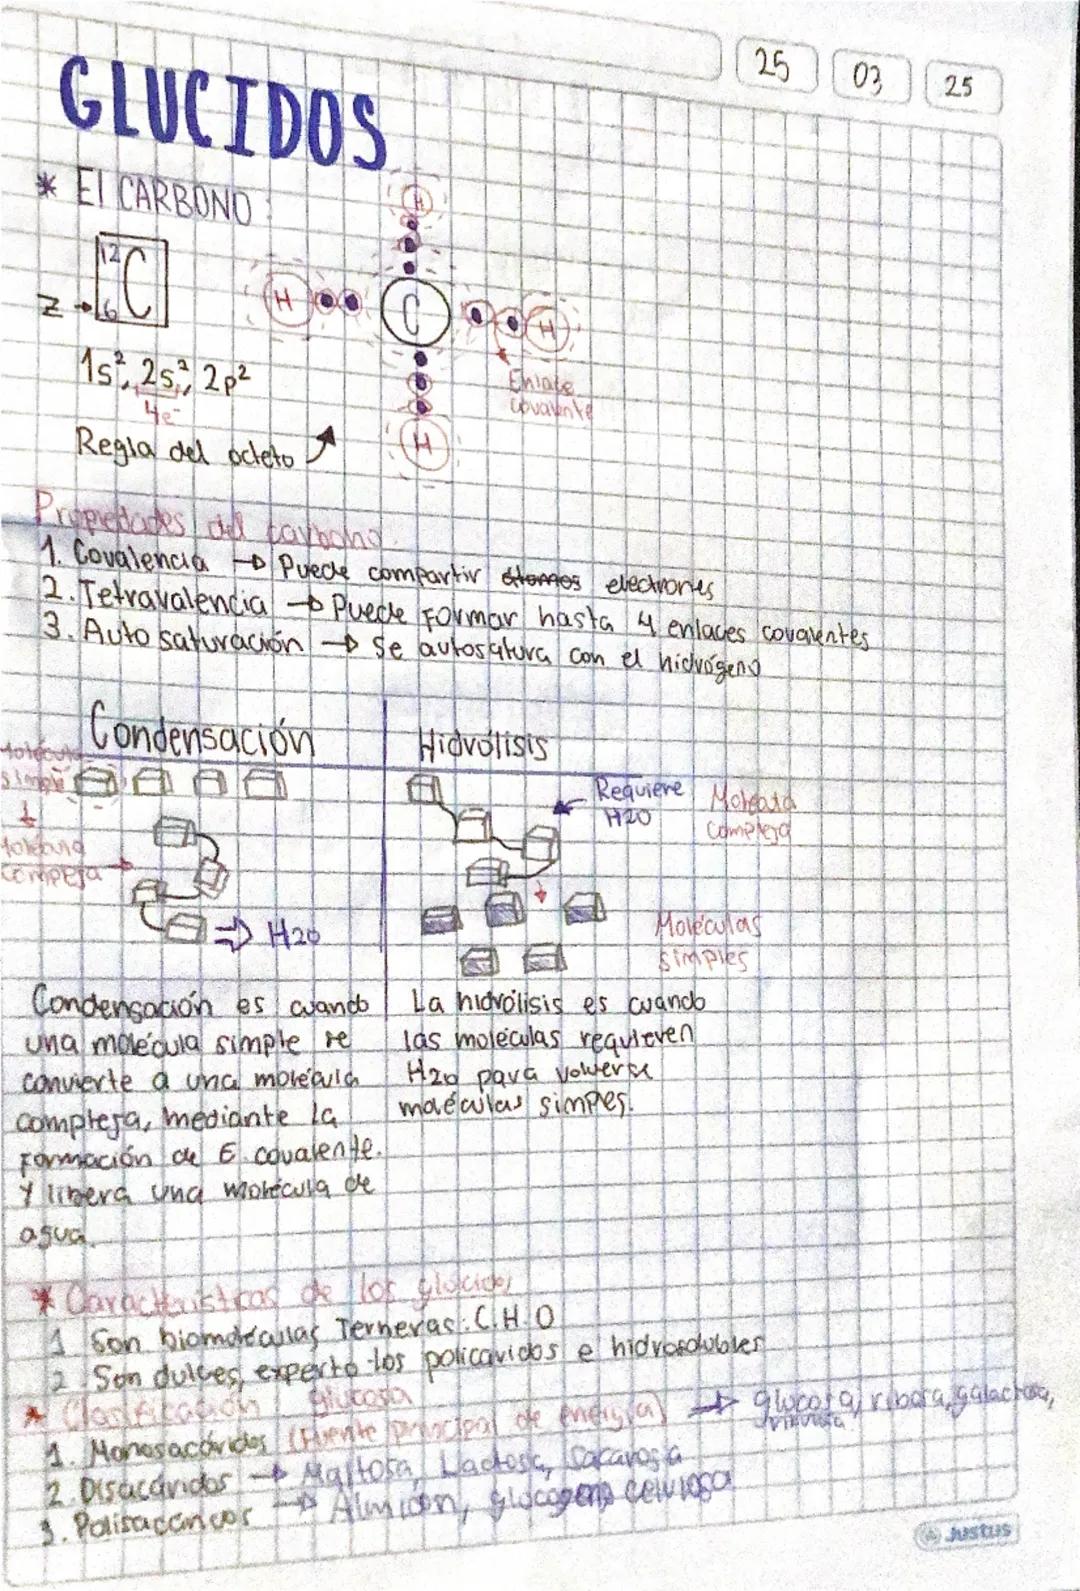 25 03 25
GLUCIDOS
* El CARBONO:
12 C
Z → 6
H H C H H
1s², 2s², 2p²
4e⁻
Enlace
covalente
Regla del octeto
Propiedades del carbono.
1. Covalencia → Puede compartir átomos electrones
2. Tetravalencia → Puede formar hasta 4 enlaces covalentes
3. Auto saturación → Se autosatura con el hidrógeno
Condensación
Molécula
simple
↓
Molécula
compleja
⇒ H2O
Condensación es cuando
una molécula simple se
convierte a una molécula
compleja, mediante la
formación de E. covalente.
Y libera una molécula de
agua.
Hidrólisis
Requiere
H2O
Molécula
compleja
Moléculas
simples
La hidrólisis es cuando
las moléculas requieren
H2O para volverse
moléculas simples.
* Características de los glúcidos
1 Son biomoléculas Terneras: C.H.O
2 Son dulces, experto los policaridos e hidrosolubles
* Clasificación glucosa
1. Monosacáridos (Fuente principal de energía) → glucosa, ribosa, galactosa,
2. Disacáridos → Maltosa, Lactosa, Sacarosa
3. Polisacáridos → Almidón, glucógeno celulosa
Justus